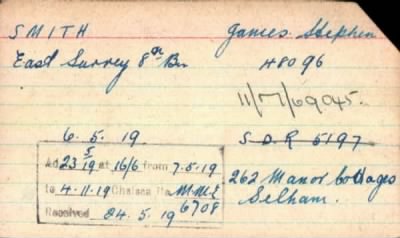 SMITH James Stephen
East Surrey 8th Bn 48096
11/M/69045.
6.5.19 S.O.R 5197
Ad 23/5/19 at 16/6 from 7.5.19
to 4.11.19 Chelsea M.M.E
Received 24.5.19 6708
262 Manor Cottages
Selham.